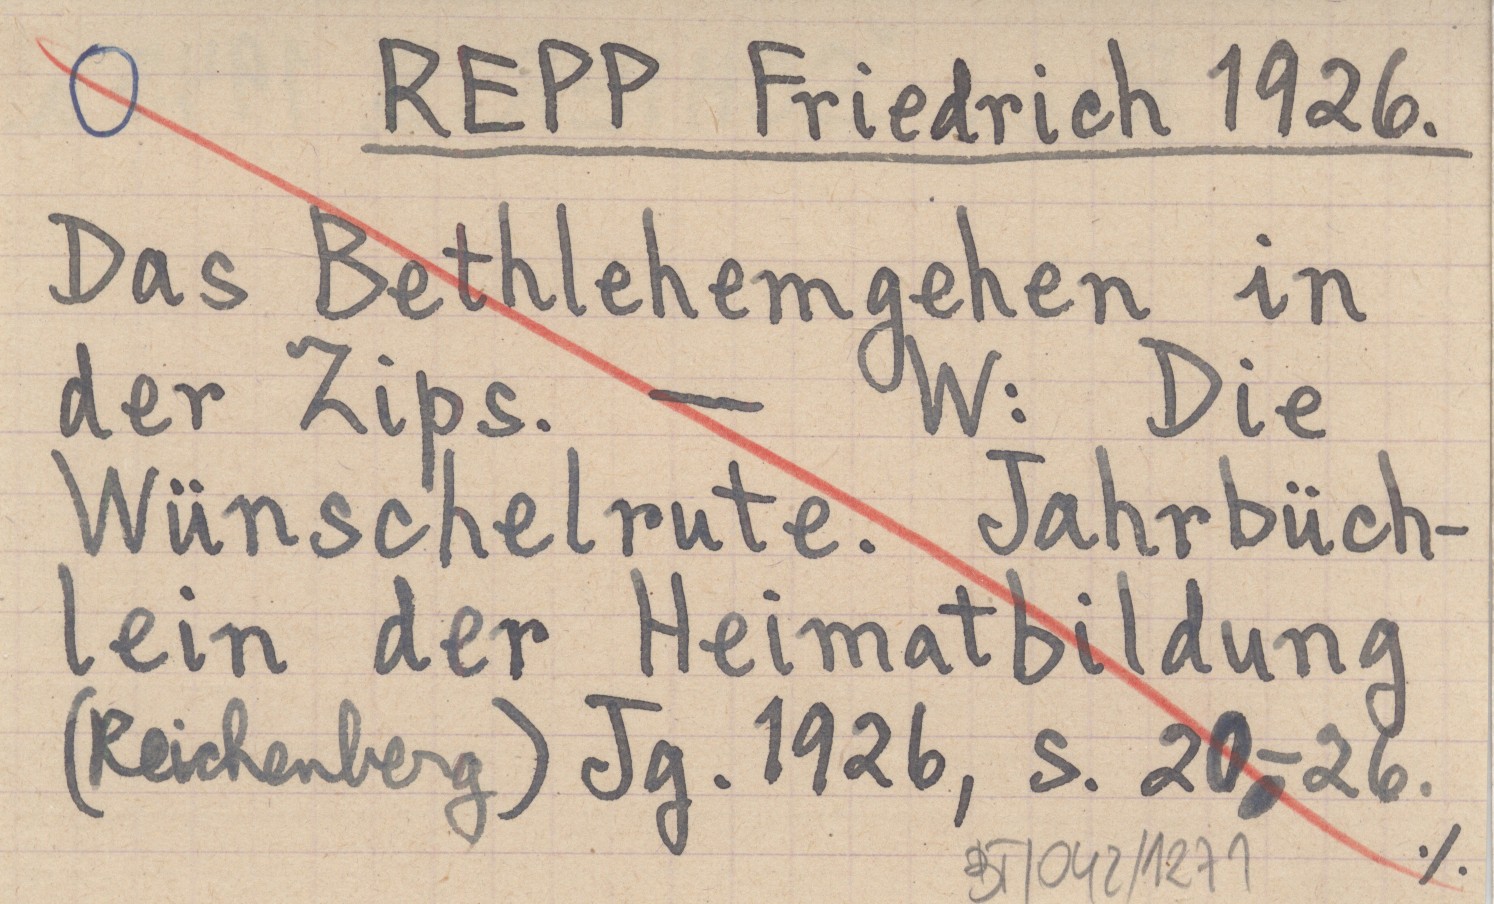 O REPP Friedrich 1926.
Das Bethlehemgehen in
der Zips. — W: Die
Wünschelrute. Jahrbüch-
lein der Heimatbildung
(Reichenberg) Jg. 1926, s. 20-26.
./.
BT/042/1271